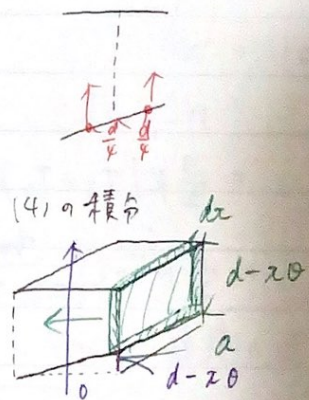 d/4 d/4
(4)の積分
dx
d-xθ
a
d-xθ
0